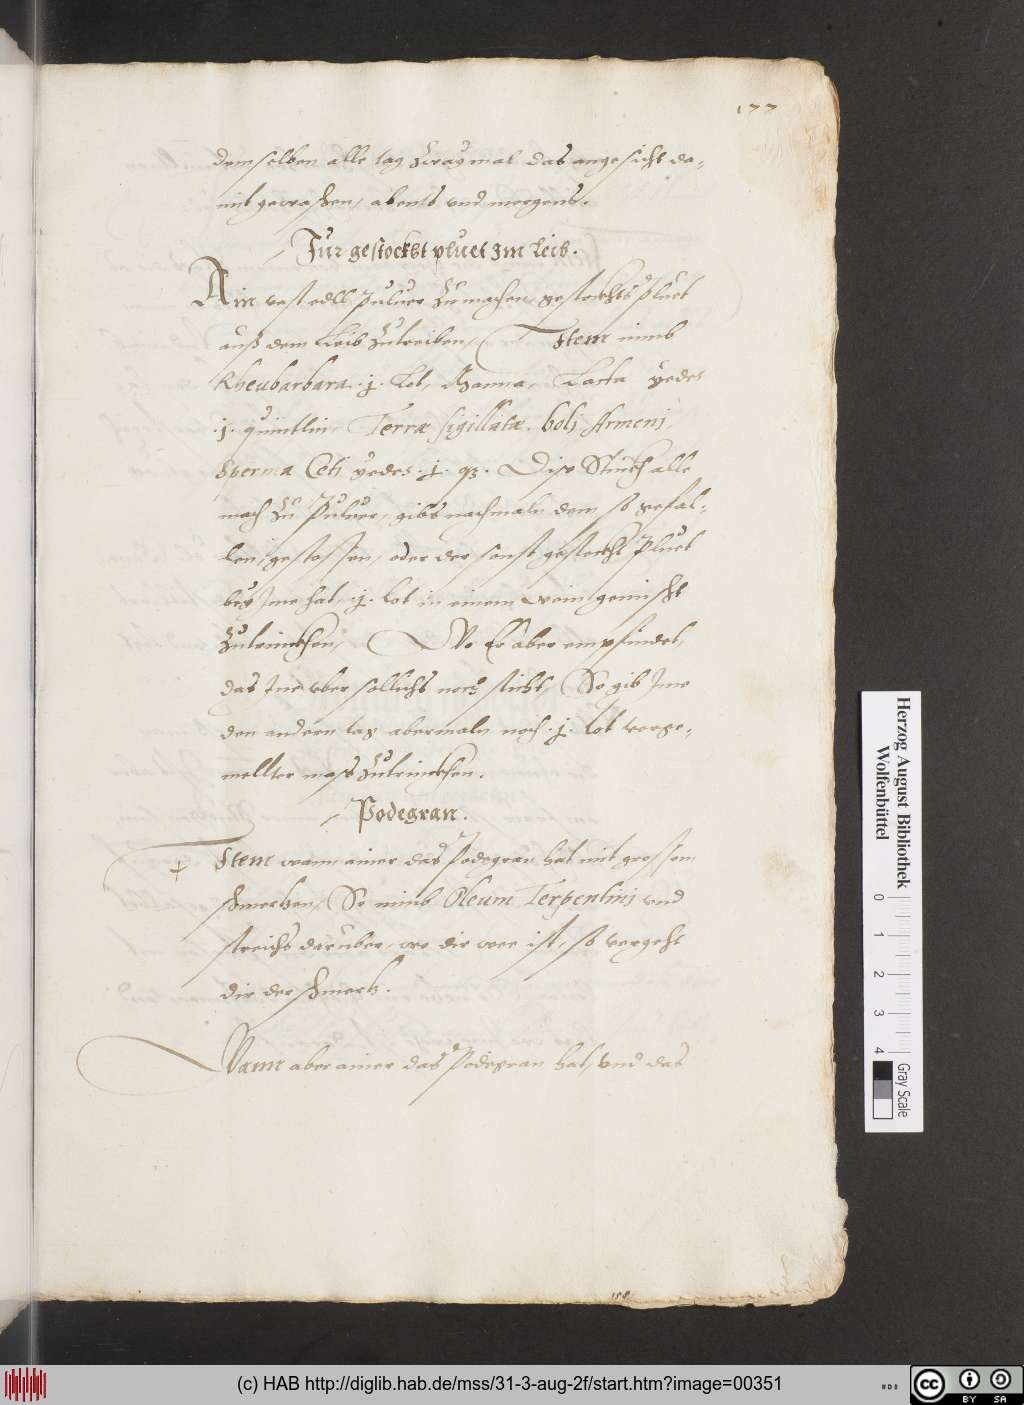 177
demselben alle tag Zwaymal das angesicht da-
mit gewaschen, abents vnd morgens.
Für gestockht pluet Im Leib.
Ain vast edll Puluer Zumachen, gestockhts Pluet
auß dem Leib Zutreiben, Item nimb
Rheubarbara .j. Lot, Manna, Lacca yedes
.j. quintlin, Terræ sigillatæ. bolj Armenj,
Sperma Ceti yedes .j. q3. Dise Stuckh alle
mach Zu Puluer, gibs nachmaln dem so gefal-
len, gestossen, oder der sonst gestockht Pluet
bey Ime hat, .j. Lot in einem wein gemischt
Zutrinckhen, Wo Er aber empfindet,
das Ine vber sollichs noch sticht, So gib Ime
den andern tag abermaln noch .j. Lot vorge-
mellter mass Zutrinckhen.
Podegran.
Item wann ainer das Podegran hat mit grossem
schmertzen, So nimb Oleum Terpentinj vnd
streichs darüber, wo dir wee ist, so vergeht
dir der schmertz.
Wann aber ainer das Podegran hat, vnd das
Herzog August Bibliothek
Wolfenbüttel
0 1 2 3 4
Gray Scale
(c) HAB http://diglib.hab.de/mss/31-3-aug-2f/start.htm?image=00351
CC BY SA